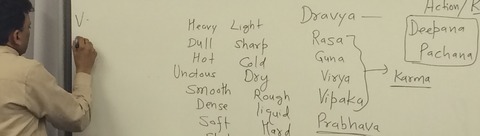 V
Heavy Light
Dull Sharp
Hot Cold
Unctous Dry
Smooth Rough
Dense liquid
Soft Hard
Dravya —
Rasa
Guna
Virya
Vipaka
Prabhava
Karma
Action/
Deepana
Pachana